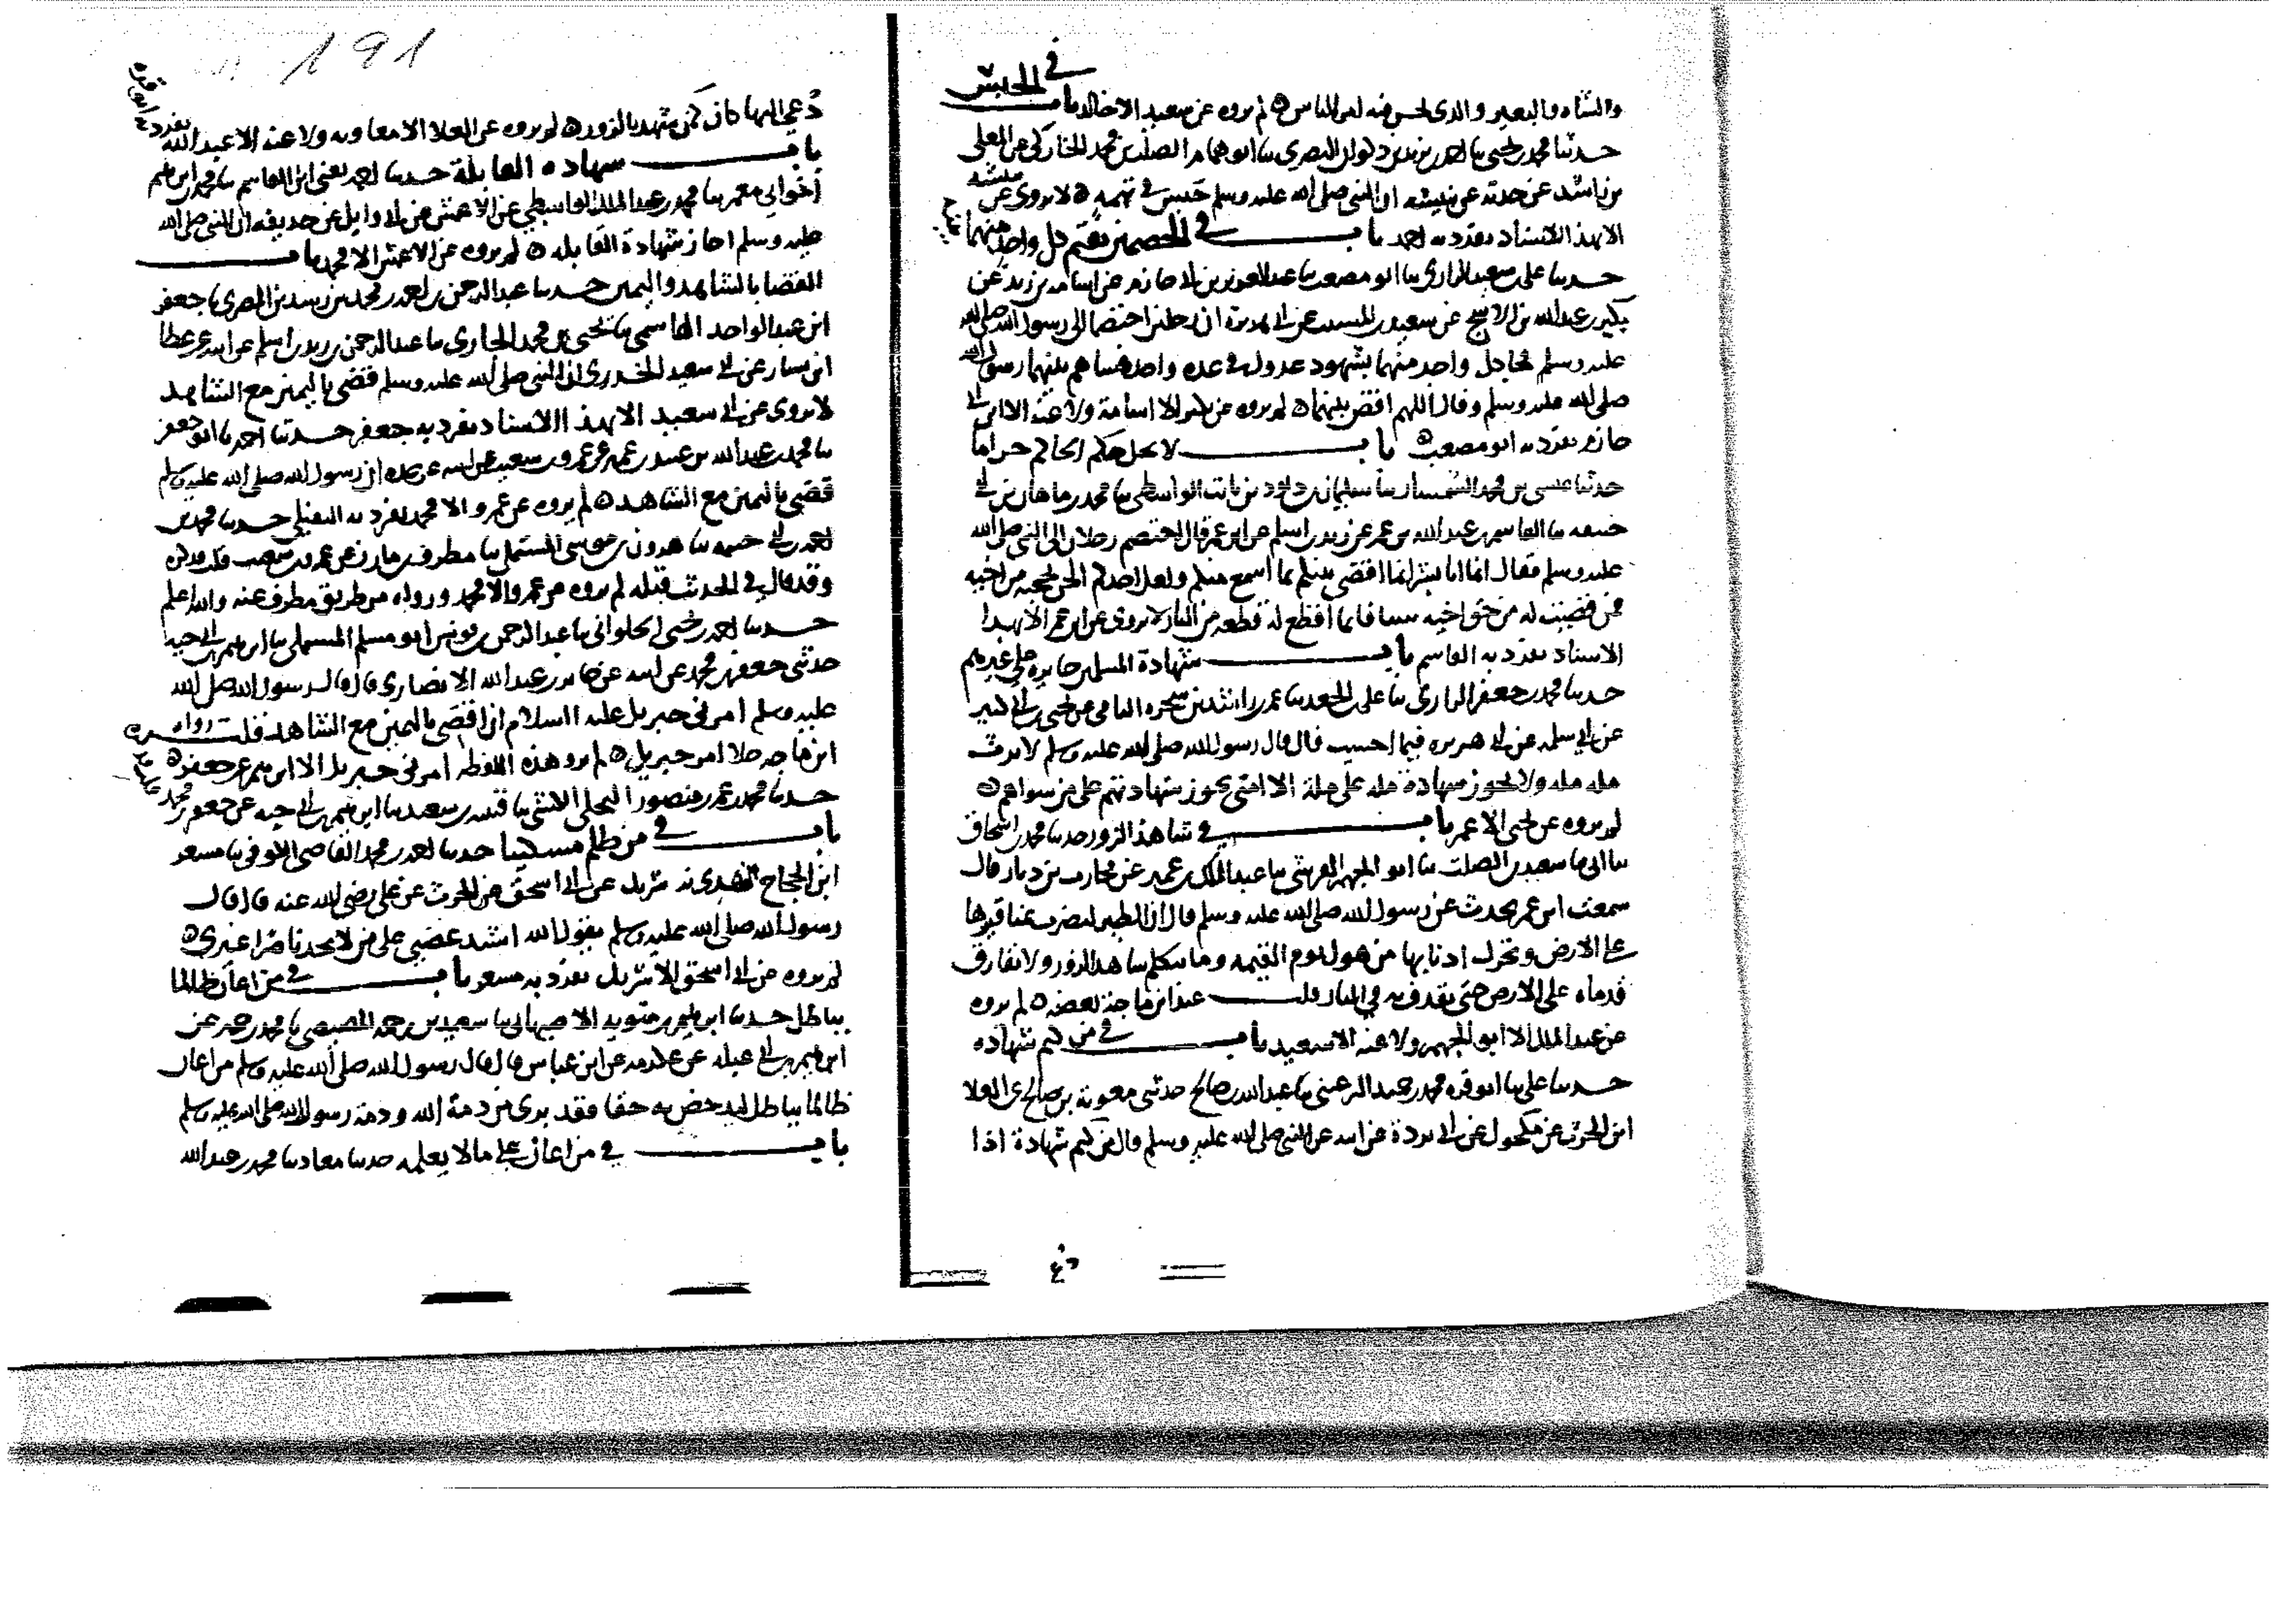 في الحبس
والشاه والبعير والذي ليس فيه لمر الناس ه لم يروه عن سعيد الا خالد باب
حدثنا محمد بن يحيى ثنا احمد بن يزيد بن البصري ثنا ابو همام الصلت بن محمد الخاركي عن المعلى
بن راشد عن جدته عن نبيشه ان النبي صلى الله عليه وسلم حبس في تهمه ه لا يروى عن نبيشه
الا بهذا الاسناد تفرد به احمد باب في الخصمين يقيم كل واحد منهما بينة
حدثنا علي بن سعيد الرازي ثنا ابو مصعب ثنا عبد العزيز بن ابي حازم عن اسامه بن زيد عن
بكير بن عبد الله بن الاشج عن سعيد بن المسيب عن ابي هريرة ان رجلين اختصما الى رسول الله صلى الله
عليه وسلم فجا كل واحد منهما بشهود عدول في عده واحده فساهم بينهما رسول الله
صلى الله عليه وسلم وقال اللهم اقض بينهما ه لم يروه عن بكير الا اسامة ولا عنه الا ابن ابي
حازم تفرد به ابو مصعب ه باب لا يحل حكم الحاكم حراما
حدثنا عيسى بن محمد السمسار ثنا سليمان بن داود بن ثابت الواسطي ثنا محمد بن ماهان بن ابي
حنيفه ثنا القاسم بن عبد الله بن عمر عن زيد بن اسلم عن ابن عمر قال اختصم رجلان الى النبي صلى الله
عليه وسلم فقال انما انا بشر انما اقضي بينكم بما اسمع منكم ولعل احدكم الحن بحجته من اخيه
فمن قضيت له من حق اخيه شيا فانما اقطع له قطعه من النار لا يروى عن ابن عمر الا بهذا
الاسناد تفرد به القاسم باب شهادة المسلمين جايزه على غيرهم
حدثنا محمد بن جعفر الرازي ثنا علي بن الجعد ثنا عمر بن راشد بن شجره اليمامي عن يحيى بن ابي كثير
عن ابي سلمه عن ابي هريره فيما احسب قال قال رسول الله صلى الله عليه وسلم لا يرث
مله مله ولا تجوز شهادة مله على ملة الا امتي تجوز شهادتهم على من سواهم ه
لم يروه عن يحيى الا عمر باب في شاهد الزور حدثنا محمد بن اسحاق
ثنا ابي ثنا سعيد بن الصلت ثنا ابو الجهم القرشي ثنا عبد الملك بن عمير عن محارب بن دثار قال
سمعت ابن عمر يحدث عن رسول الله صلى الله عليه وسلم قال ان الطير لتضرب بمناقيرها
على الارض وتحرك اذنابها من هول يوم القيمه وما يتكلم شاهد الزور ولا تفارق
قدماه على الارض حتى يقذف به في النار قلت عند ابن ماجة بعضه ه لم يروه
عن عبد الملك الا ابو الجهم ولا عنه الا سعيد باب في من كتم شهاده
حدثنا علي ثنا ابو قره محمد بن حميد الرعيني ثنا عبد الله بن صالح حدثني معوية بن صالح عن العلا
ابن الحرث عن مكحول عن ابي بردة عن ابيه عن النبي صلى الله عليه وسلم قال من كتم شهادة اذا
191
دعي اليها كان كمن شهد بالزور ه لم يروه عن العلا الا معاويه ولا عنه الا عبد الله تفرد به ابو قره
باب شهاده القابلة حدثنا احمد يعني ابن القاسم ثنا محمد بن ابراهيم
اخو ابي معمر ثنا محمد بن عبد الملك الواسطي عن الاعمش عن ابي وايل عن حذيفه ان النبي صلى الله
عليه وسلم اجاز شهادة القابله ه لم يروه عن الاعمش الا محمد باب
القضا بالشاهد واليمين حدثنا عبد الرحمن بن احمد بن محمد بن رشدين المصري ثنا جعفر
ابن عبد الواحد الهاشمي ثنا يحيى بن محمد الجاري ثنا عبد الرحمن بن زيد بن اسلم عن ابيه عن عطا
ابن يسار عن ابي سعيد الخدري ان النبي صلى الله عليه وسلم قضى باليمين مع الشاهد
لا يروى عن ابي سعيد الا بهذا الاسناد تفرد به جعفر حدثنا احمد ثنا ابو جعفر
ثنا محمد بن عبد الله بن عبيد بن عمير عن عمرو بن سعيد عن ابيه عن جده ان رسول الله صلى الله عليه وسلم
قضى باليمين مع الشاهد ه لم يروه عن عمرو الا محمد تفرد به النفيلي حدثنا محمد بن
احمد بن ابي خيثمه ثنا هرون بن موسى المستملي ثنا مطرف بن مازن عن عمرو بن شعيب فذكره
وقد قال في الحديث قبله لم يروه عن عمرو الا محمد ورواه من طريق مطرف عنه والله اعلم
حدثنا احمد بن يحيى الحلواني ثنا عبد الرحمن بن يونس ابو مسلم المستملي ثنا ابراهيم بن ابي حيه
حدثني جعفر بن محمد عن ابيه عن جابر بن عبد الله الانصاري قال قال رسول الله صلى الله
عليه وسلم امرني جبريل عليه السلام ان اقضي باليمين مع الشاهد قلت رواه
ابن ماجه خلا امر جبريل ه لم يرو هذه اللفظه امرني جبريل الا ابراهيم عن جعفر ه
حدثنا محمد بن عمر بن منصور البجلي الاشني ثنا قتيبه بن سعيد ثنا ابراهيم بن ابي حيه عن جعفر بن محمد
باب في من ظلم مسكينا حدثنا احمد بن محمد القاضي الكوفي ثنا مسعر
ابن الحجاج النهدي ثنا شريك عن ابي اسحق عن الحرث عن علي رضي الله عنه قال قال
رسول الله صلى الله عليه وسلم يقول الله اشتد غضبي على من لا يجد ناصرا غيري ه
لم يروه عن ابي اسحق الا شريك تفرد به مسعر باب في من اعان ظالما
بباطل حدثنا ابراهيم بن متويه الاصبهاني ثنا سعيد بن رحمه المصيصي ثنا محمد بن حمير عن
ابراهيم بن ابي عبله عن عكرمه عن ابن عباس قال قال رسول الله صلى الله عليه وسلم من اعان
ظالما بباطل ليدحض به حقا فقد بري من ذمة الله وذمة رسول الله صلى الله عليه وسلم
باب في من اعان على ما لا يعلمه حدثنا معاذ ثنا محمد بن عبد الله